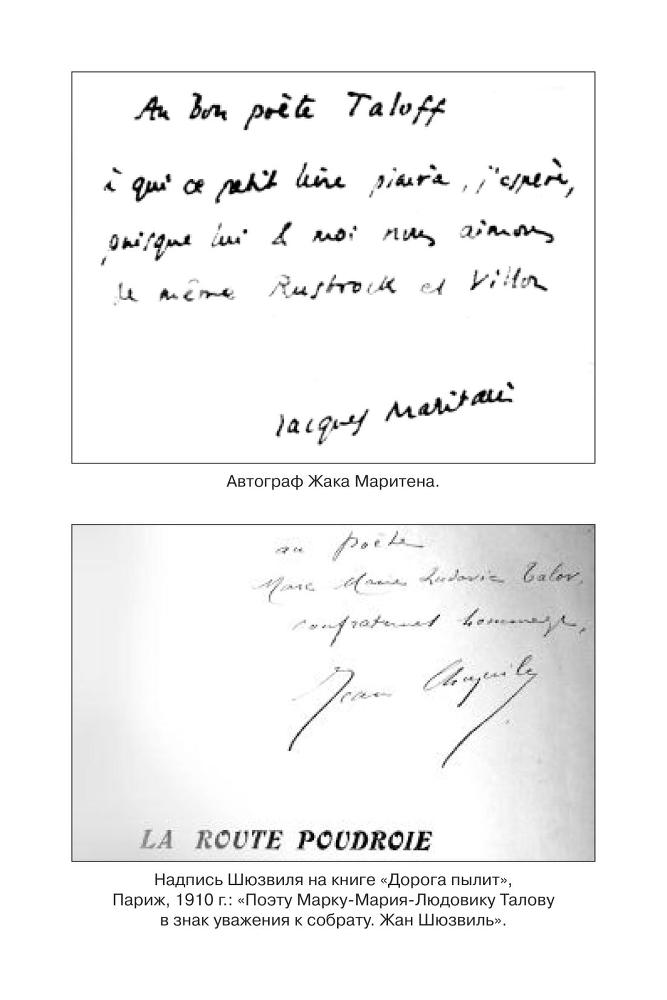 Au Bon poète Taloff
à qui ce petit livre plaira, j'espère,
puisque lui & moi nous aimons
le même Rusbrock et Villon
Jacques Maritain
Автограф Жака Маритена.
au poète
Marc Marie Ludovic Talov,
confraternel hommage,
Jean Chuzeville
LA ROUTE POUDROIE
Надпись Шюзвиля на книге «Дорога пылит»,
Париж, 1910 г.: «Поэту Марку-Мария-Людовику Талову
в знак уважения к собрату. Жан Шюзвиль».